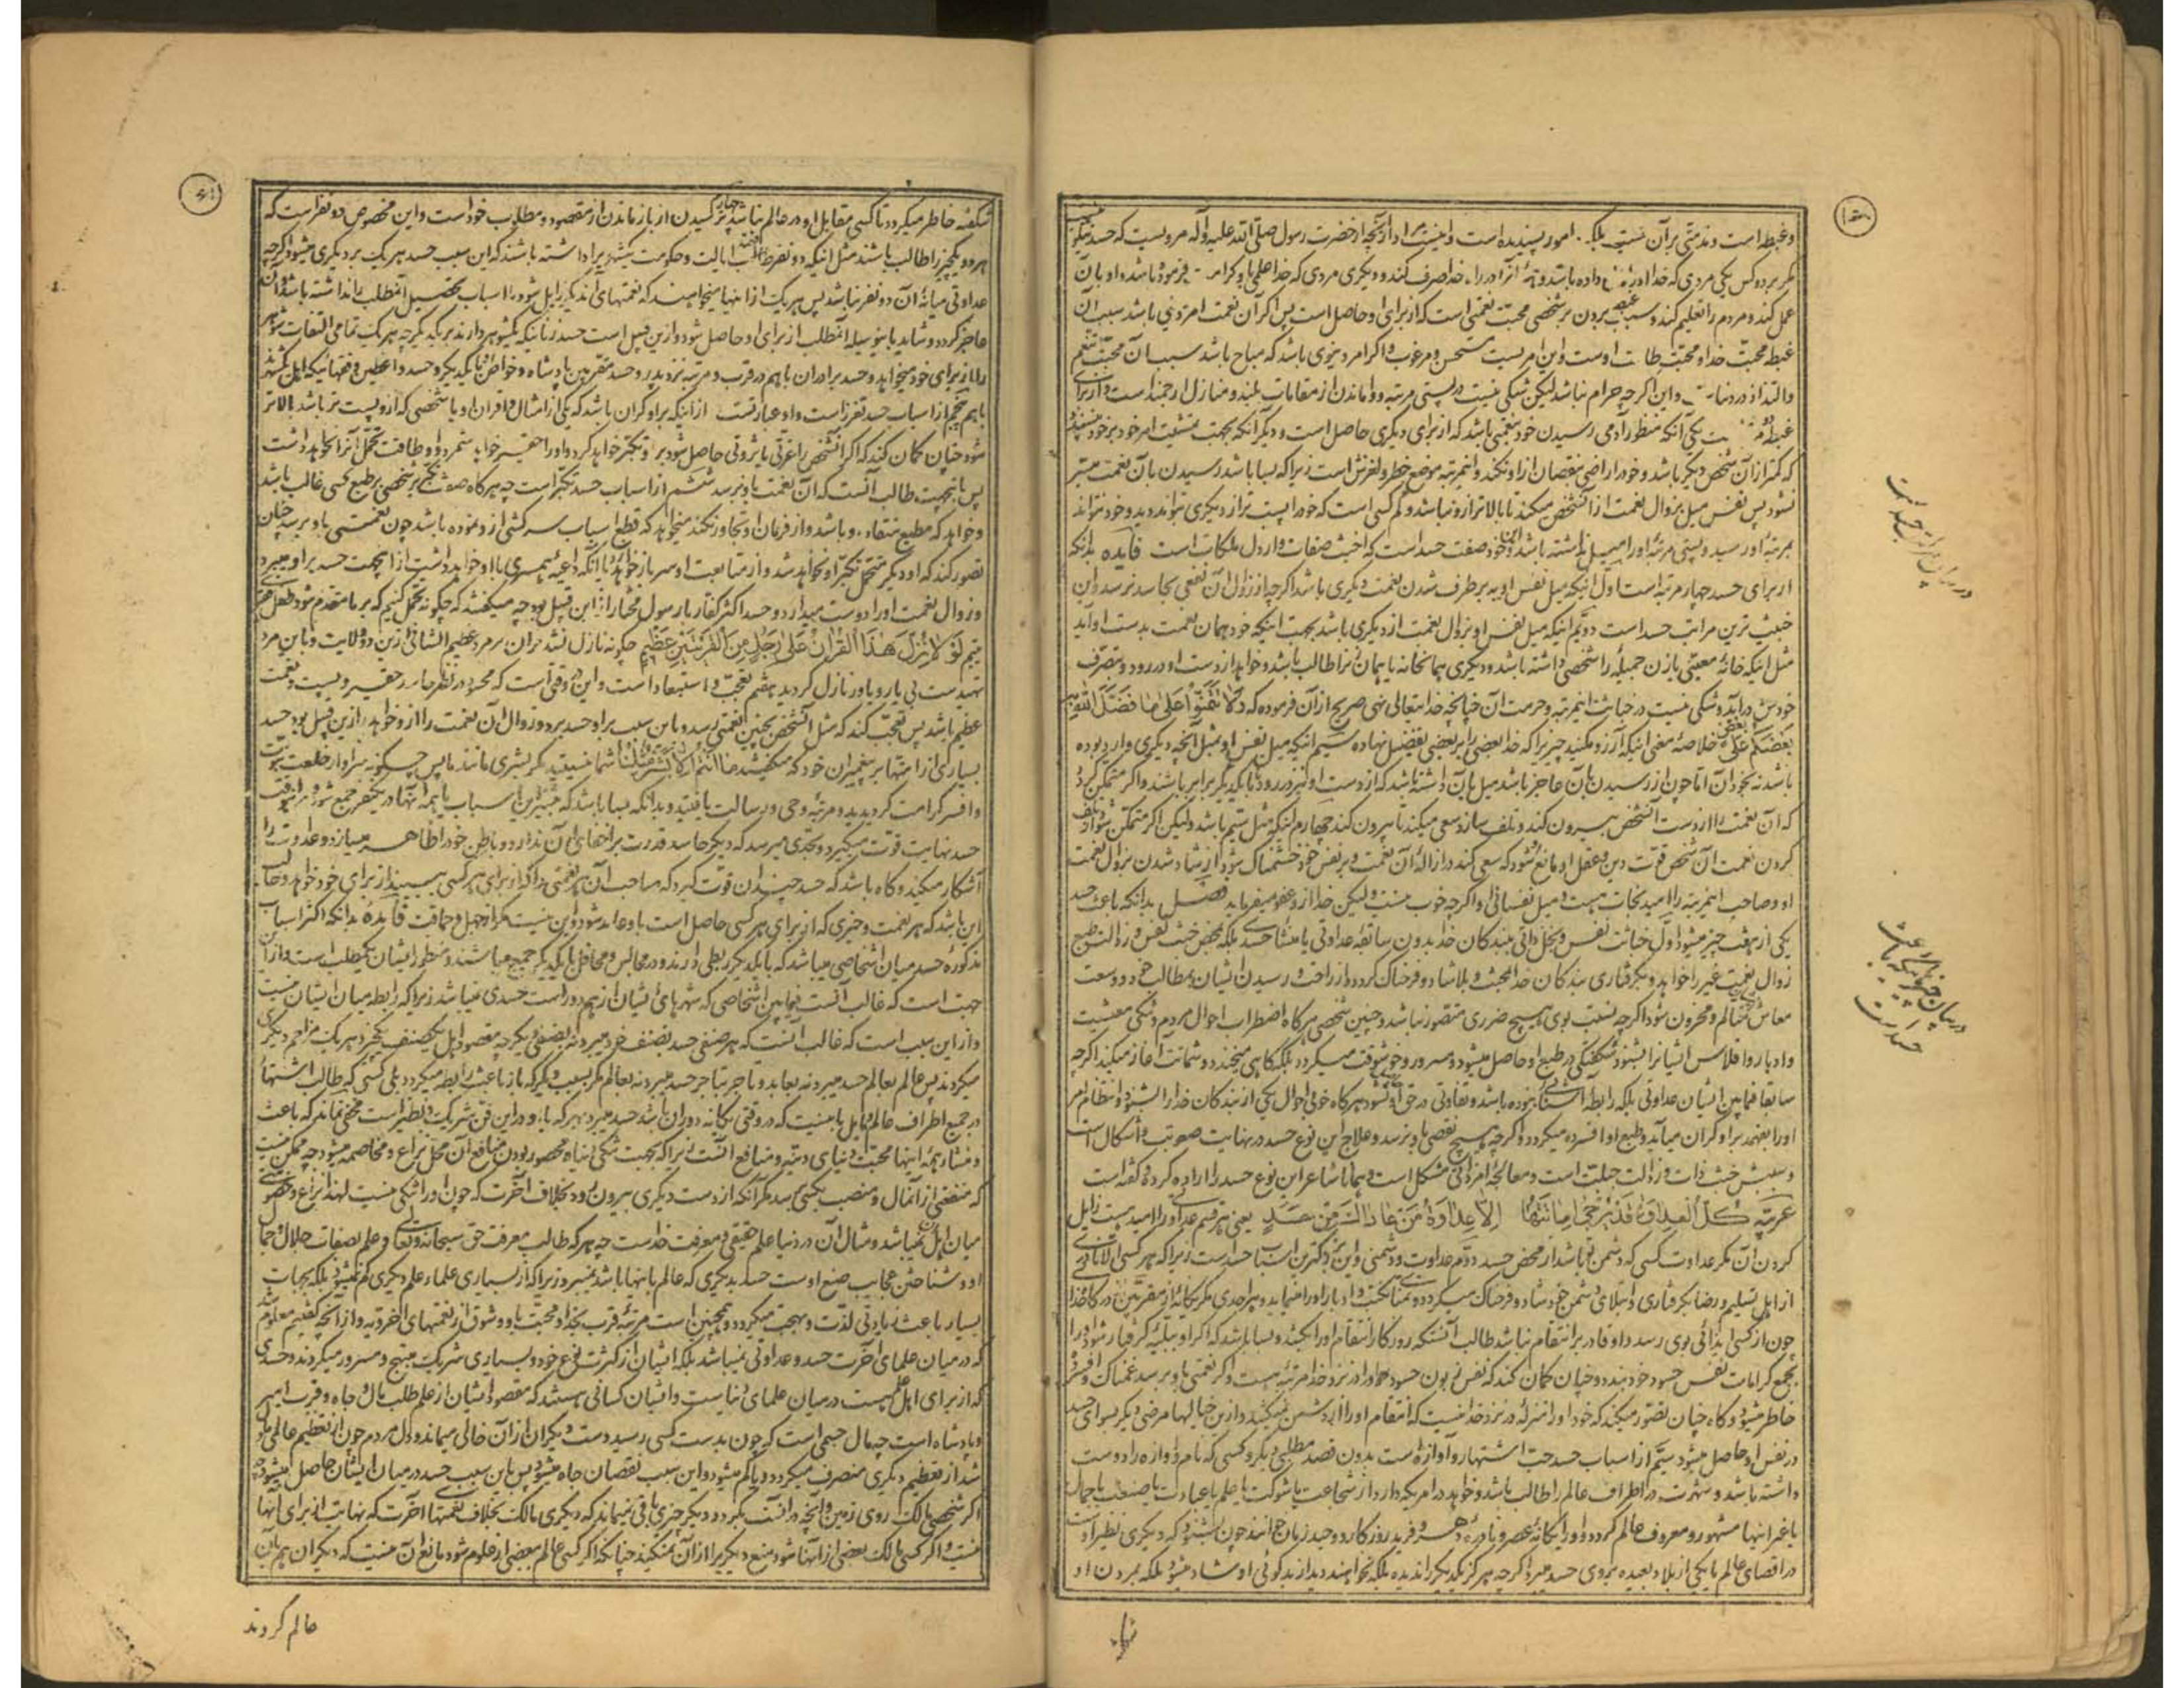 و غبطه است و مذمتی بر آن نیست بلکه امور پسندیده است و آنچه از حضرت رسول صلی الله علیه و آله مرویست که حسد نیکو
مگر بر دو کس یکی مردی که خدا داده باشد و آنرا در راه خدا صرف کند و دیگری مردی که خدا علمی باو کرامت فرموده باشد و او بآن
عمل کند و مردم را تعلیم کند و سبب غبطه بردن بر شخصی محبت نعمتی است که از برای او حاصل است پس اگر آن نعمت امر دینی باشد سبب آن
غبطه محبت خدا و محبت طاعت اوست و این امریست مستحسن و مرغوب و اگر امر دنیوی باشد که مباح باشد سبب آن محبت تنعم
و التذاذ در دنیاست و این اگر چه حرام نباشد لیکن شکی نیست در پستی مرتبه و واماندن از مقامات بلند و منازل ارجمند است و از برای
غبطه دو مرتبه است یکی آنکه منظور آدمی رسیدن خود بنعمتی باشد که از برای دیگری حاصل است و دیگر آنکه بجهت تمشیت امر خود بر خود نپسندد
که کمتر از آن شخص دیگر باشد و خود را راضی بنقصان از او نکند و این مرتبه موضع خطر و لغزش است زیرا که بسا باشد رسیدن بآن نعمت میسر
نشود پس نفس میل بزوال نعمت از آنشخص میکند تا بالاتر از او نباشد و کم کسی است که خود را پست تر از دیگری تواند دید و خود نتواند
بمرتبه او رسید و پستی مرتبه او را میل نداشته باشد و این خود صفت حسد است که اخبث صفات و ارذل ملکات است فایده بدانکه
از برای حسد چهار مرتبه است اول اینکه میل نفس او به برطرف شدن نعمت دیگری باشد اگر چه از زوال آن نفعی بحاسد نرسد و این
خبیث ترین مراتب حسد است دویم اینکه میل نفس او بزوال نعمت از دیگری باشد بجهت اینکه خود همان نعمت بدست او آید
مثل اینکه خانه معینی یا زن جمیله را شخصی داشته باشد و دیگری همان خانه یا همان زنرا طالب باشد و خواهد از دست او در رود و بتصرف
خودش در آید و شکی نیست در خباثت این مرتبه و حرمت آن چنانچه خدایتعالی نهی صریح از آن فرموده که وَلَا تَتَمَنَّوْا مَا فَضَّلَ اللهُ بِهِ
بَعْضَكُمْ عَلَى بَعْضٍ خلاصه معنی اینکه آرزو مکنید چیزیرا که خدا بعضی را بر بعضی تفضیل نهاده سیم اینکه میل نفس او بمثل آنچه دیگری وارد بوده
باشد نه بخود آن اما چون از رسیدن بآن عاجز باشد میل بآن داشته باشد که از دست او نیز در رود تا با یکدیگر برابر باشند و اگر متمکن گردد
که آن نعمت را از دست آنشخص بیرون کند و تلف سازد سعی میکند تا بیرون کند چهارم اینکه مثل سیم باشد ولیکن اگر متمکن شود از تلف
کردن نعمت آن شخص قوت دین و عقل او مانع شود که سعی کند در ازاله آن نعمت و بر نفس خود خشمناک شود از شاد شدن بزوال نعمت
او و صاحب این مرتبه را امید نجات هست و میل نفسانی او اگر چه خوب نیست ولیکن خدا از او عفو میفرماید فصل بدانکه باعث حسد
یکی از هفت چیز میشود اول خباثت نفس و بخل ذاتی ببندگان خدا بدون سابقه عداوتی یا منشاء حسدی بلکه بمحض خبث نفس و رذالت طبع
زوال نعمت غیر را خواهد و بگرفتاری بندگان خدا بمحنت و بلا شاد و فرحناک گردد و از راحت و رسیدن ایشان بمطالب خود و وسعت
معاش متألم و محزون شود اگر چه نسبت بوی هیچ ضرری متصور نباشد و چنین شخصی هرگاه اضطراب احوال مردم و تنگی معیشت
و ادبار و افلاس ایشانرا بشنود شکفتگی در طبع او حاصل میشود و مسرور و خوشوقت میگردد بلکه گاهی میخندد و شماتت آغاز میکند اگر چه
سابقا فیما بین ایشان عداوتی بلکه رابطه آشنائی نبوده باشد و تفاوتی در حق او نشود و هرگاه خوبی احوال یکی از بندگان خدا را بشنود و انتظام امر
او را بفهمد بر او گران میآید و طبع او افسرده میگردد و اگر چه هیچ نقصی باو نرسد و علاج این نوع حسد در نهایت صعوبت و اشکال است
و سببش خبث ذات و رذالت جبلت است و معالجه امر ذاتی مشکل است و همانا شاعر این نوع حسد را اراده کرده و گفته است
عربیه كُلُّ الْعَدَاوَةِ قَدْ تُرْجَى اِمَاتَتُهَا اِلَّا عَدَاوَةَ مَنْ عَادَاكَ مِنْ حَسَدٍ یعنی هر قسم عداوتی را امید هست زایل
کردن آن مگر عداوت کسی که دشمن تو باشد از محض حسد دویم عداوت و دشمنی و این بزرگترین اسباب حسد است زیرا که هر کسی الا نادری
از اهل تسلیم و رضا بگرفتاری و ابتلای دشمن خود شاد و فرحناک میگردد و تمنای نکبت و ادبار او را مینماید و هر احدی مگر یگانه از مقربین درگاه خدا
چون از کسی ایذائی بوی رسد و او قادر بر انتقام نباشد طالب آنستکه روزگار انتقام او را بکشد و بسا باشد که اگر او ببلیه گرفتار شود آنرا
بجمع کرامات نفس حسود خود بندد و چنان گمان کند که نفس زبون حسود او را در نزد خدا مرتبه هست و اگر نعمتی باو برسد غمناک و افسرده
خاطر میشود و گاه چنان تصور میکند که خود او را منزله در نزد خدا نیست که انتقام او را از دشمن نمیکشد و از این خیالها مرضی دیگر سوای حسد
در نفس او حاصل میشود سیم از اسباب حسد حب اشتهار و آوازه است بدون قصد مطلبی دیگر و کسی که نام و آوازه را دوست
داشته باشد و شهرت در اطراف عالم را طالب باشد و خواهد در امریکه دارد از شجاعت یا شوکت یا علم یا عبادت یا صنعت یا جمال
یا غیر اینها مشهور و معروف عالم گردد و او را یگانه عصر و نادره دهر و فرید روزگار و وحید زمان خوانند چون بشنود که دیگری نظیر اوست
در اقصای عالم یا یکی از بلاد بعیده بر وی حسد میبرد اگر چه هرگز یکدیگر را ندیده بلکه نخواهند دید از بدگوئی او شاد میشود بلکه بمردن او
در بیان مراتب حسد است
در بیان چیزهائی که باعث حسد است
شکفته خاطر میگردد تا کسی مقابل او در عالم نباشد چهارم ترسیدن از باز ماندن از مقصود و مطلوب خود است و این مخصوص دو نفر است که
هر دو یکچیز را طالب باشند مثل اینکه دو نفر طالب ایالت و حکومت یکشهر را داشته باشند که این سبب حسد هر یک بر دیگری میشود اگر چه
عداوتی میانه آن دو نفر نباشد پس هر یک از اینها میخواهند که نعمتهای آن دیگر زایل شود و اسباب تحصیل آنمطلب را نداشته باشد و از آن
عاجز گردد و شاید باینوسیله آنمطلب از برای او حاصل شود و از این قبیل است حسد زنانیکه یکشوهر دارند بر یکدیگر چه هر یک تمامی التفات شوهر
را از برای خود میخواهد و حسد برادران با هم در قرب و مرتبه نزد پدر و حسد مقربین پادشاه و خواص او با یکدیگر و حسد واعظین و فقهائیکه اهل یکشهرند
با هم پنجم از اسباب حسد تعزز است و او عبارتست از اینکه بر او گران باشد که یکی از امثال و اقران او یا شخصی که از او پست تر باشد بالاتر
شود و چنان گمان کند که اگر آنشخص را عزتی یا ثروتی حاصل شود بر او تکبر خواهد کرد و او را حقیر خواهد شمرد و او طاقت تحمل آنرا نخواهد داشت
پس باینجهت طالب آنست که آن نعمت باو نرسد ششم از اسباب حسد تکبر است چه هرگاه صفت تکبر شخصی بر طبع کسی غالب باشد
و خواهد که مطیع و منقاد او باشد و از فرمان او تجاوز نکند میخواهد که قطع اسباب سرکشی از او نموده باشد چون نعمتی باو برسد چنان
تصور کند که او دیگر متحمل تکبر او نخواهد شد و از متابعت او سر باز خواهد زد یا آنکه داعیه همسری با او خواهد داشت از اینجهت حسد بر او میبرد
و زوال نعمت او را دوست میدارد و حسد اکثر کفار بر رسول مختار از این قبیل بود چه میگفتند که چگونه تحمل کنیم که بر ما مقدم شود طفل
یتیم لَوْلَا نُزِّلَ هَذَا الْقُرْآنُ عَلَى رَجُلٍ مِنَ الْقَرْيَتَيْنِ عَظِيمٍ چگونه نازل نشد قرآن بر مرد عظیم الشانی از این دو ولایت و باین مرد
تهیدست بی یار و یاور نازل گردید هفتم تعجب و استبعاد است و این در وقتی است که محسود در نظر حاسد حقیر و پست و نعمت
عظیم باشد پس تعجب کند که مثل آنشخص بچنین نعمتی رسد و باین سبب بر او حسد برد و زوال آن نعمت را از او خواهد و از این قبیل بود حسد
بسیاری از امتها بر پیغمبران خود که میگفتند مَا اَنْتُمْ اِلَّا بَشَرٌ مِثْلُنَا شما نیستید مگر بشری مانند ما پس چگونه سزاوار خلعت نبوت
و افسر کرامت گردیدید و مرتبه وحی و رسالت یافتید و بدانکه بسا باشد که بیشتر این اسباب یا همه آنها در یکنفر جمع شود و در آنوقت
حسد نهایت قوت میگیرد و بحدی میرسد که دیگر حاسد قدرت بر اخفای آن ندارد و باطن خود را ظاهر میسازد و عداوت را
آشکار میکند و گاه باشد که حسد چندان قوت گیرد که صاحب آن هر نعمتی را که از برای هر کسی ببیند از برای خود خواهد و طالب
این باشد که هر نعمت و خیری که از برای هر کسی حاصل است باو عاید شود و این نیست مگر از جهل و حماقت فایده بدانکه اکثر اسباب
مذکوره حسد میان اشخاصی میباشد که با یکدیگر ربطی دارند و در مجالس و محافل با یکدیگر جمع میباشند و منظور ایشان یکمطلب است و از این
جهت است که غالب آنست فیما بین اشخاصی که شهرهای ایشان از هم دور است حسدی نمیباشد زیرا که رابطه میان ایشان نیست
و از این سبب است که غالب آنست که هر صنفی حسد بصنف خود میبرد نه بصنفی دیگر چه مقصود اهل یکصنف یکچیز و هر یک مزاحم دیگری
میگردند پس عالم بعالم حسد میبرد نه بعابد و تاجر بتاجر حسد میبرد نه بعالم مگر بسببی دیگر که باز باعث رابطه میگردد بلی کسی که طالب اشتهار
در جمیع اطراف عالم و مایل باینست که در وقتی یگانه دوران باشد حسد میبرد بهر که با او در این فن شریک و نظیر است مخفی نماند که باعث
و منشاء همه اینها محبت دنیای دنیه و منافع آنست زیرا که بجهت تنگی دنیا و محصور بودن منافع آن محل نزاع و مخاصمه میشود چه ممکن نیست
که منفعتی از آنمال و منصب بکسی رسد مگر آنکه از دست دیگری بیرون رود بخلاف آخرت که چون او را تنگی نیست لهذا نزاع و خصومتی
میان اهل آن نمیباشد و مثال آن در دنیا علم حقیقی و معرفت خداست چه هر که طالب معرفت حق سبحانه و تعالی و علم بصفات جلال و جمال
او و شناختن عجایب صنع اوست حسد بدیگری که عالم باینها باشد نمیبرد زیرا که از بسیاری علماء علم دیگری کم نمیشود بلکه بجهات
بسیار باعث زیادتی لذت و بهجت میگردد و همچنین است مرتبه قرب بخدا و محبت باو و شوق از نعمتهای اخرویه و از آنچه گفتیم معلوم شد
که در میان علمای آخرت حسد و عداوتی نمیباشد بلکه ایشان از کثرت نوع خود و بسیاری شریک مبتهج و مسرور میگردند و حسدی
که از برای اهل علم هست در میان علمای دنیاست و ایشان کسانی هستند که مقصود ایشان از علم طلب مال و جاه و قرب امیر
و پادشاه است چه مال جسمی است که چون بدست کسی رسید دست دیگران از آن خالی میماند و دل مردم چون از تعظیم عالمی مملو
شد از تعظیم دیگری منصرف میگردد و یا کم میشود و این سبب نقصان جاه میشود پس باین سبب حسد در میان ایشان حاصل میشود چه
اگر شخصی مالک روی زمین و آنچه در آنست بگردد دیگر چیزی باقی نمیماند که دیگری مالک بخلاف نعمتهای آخرت که نهایت از برای آنها
نیست و اگر کسی مالک بعضی از آنها شود منع دیگریرا از آن نمیکند چنانکه اگر کسی عالم ببعضی از علوم شود مانع آن نیست که دیگران هم بآن
عالم گردند